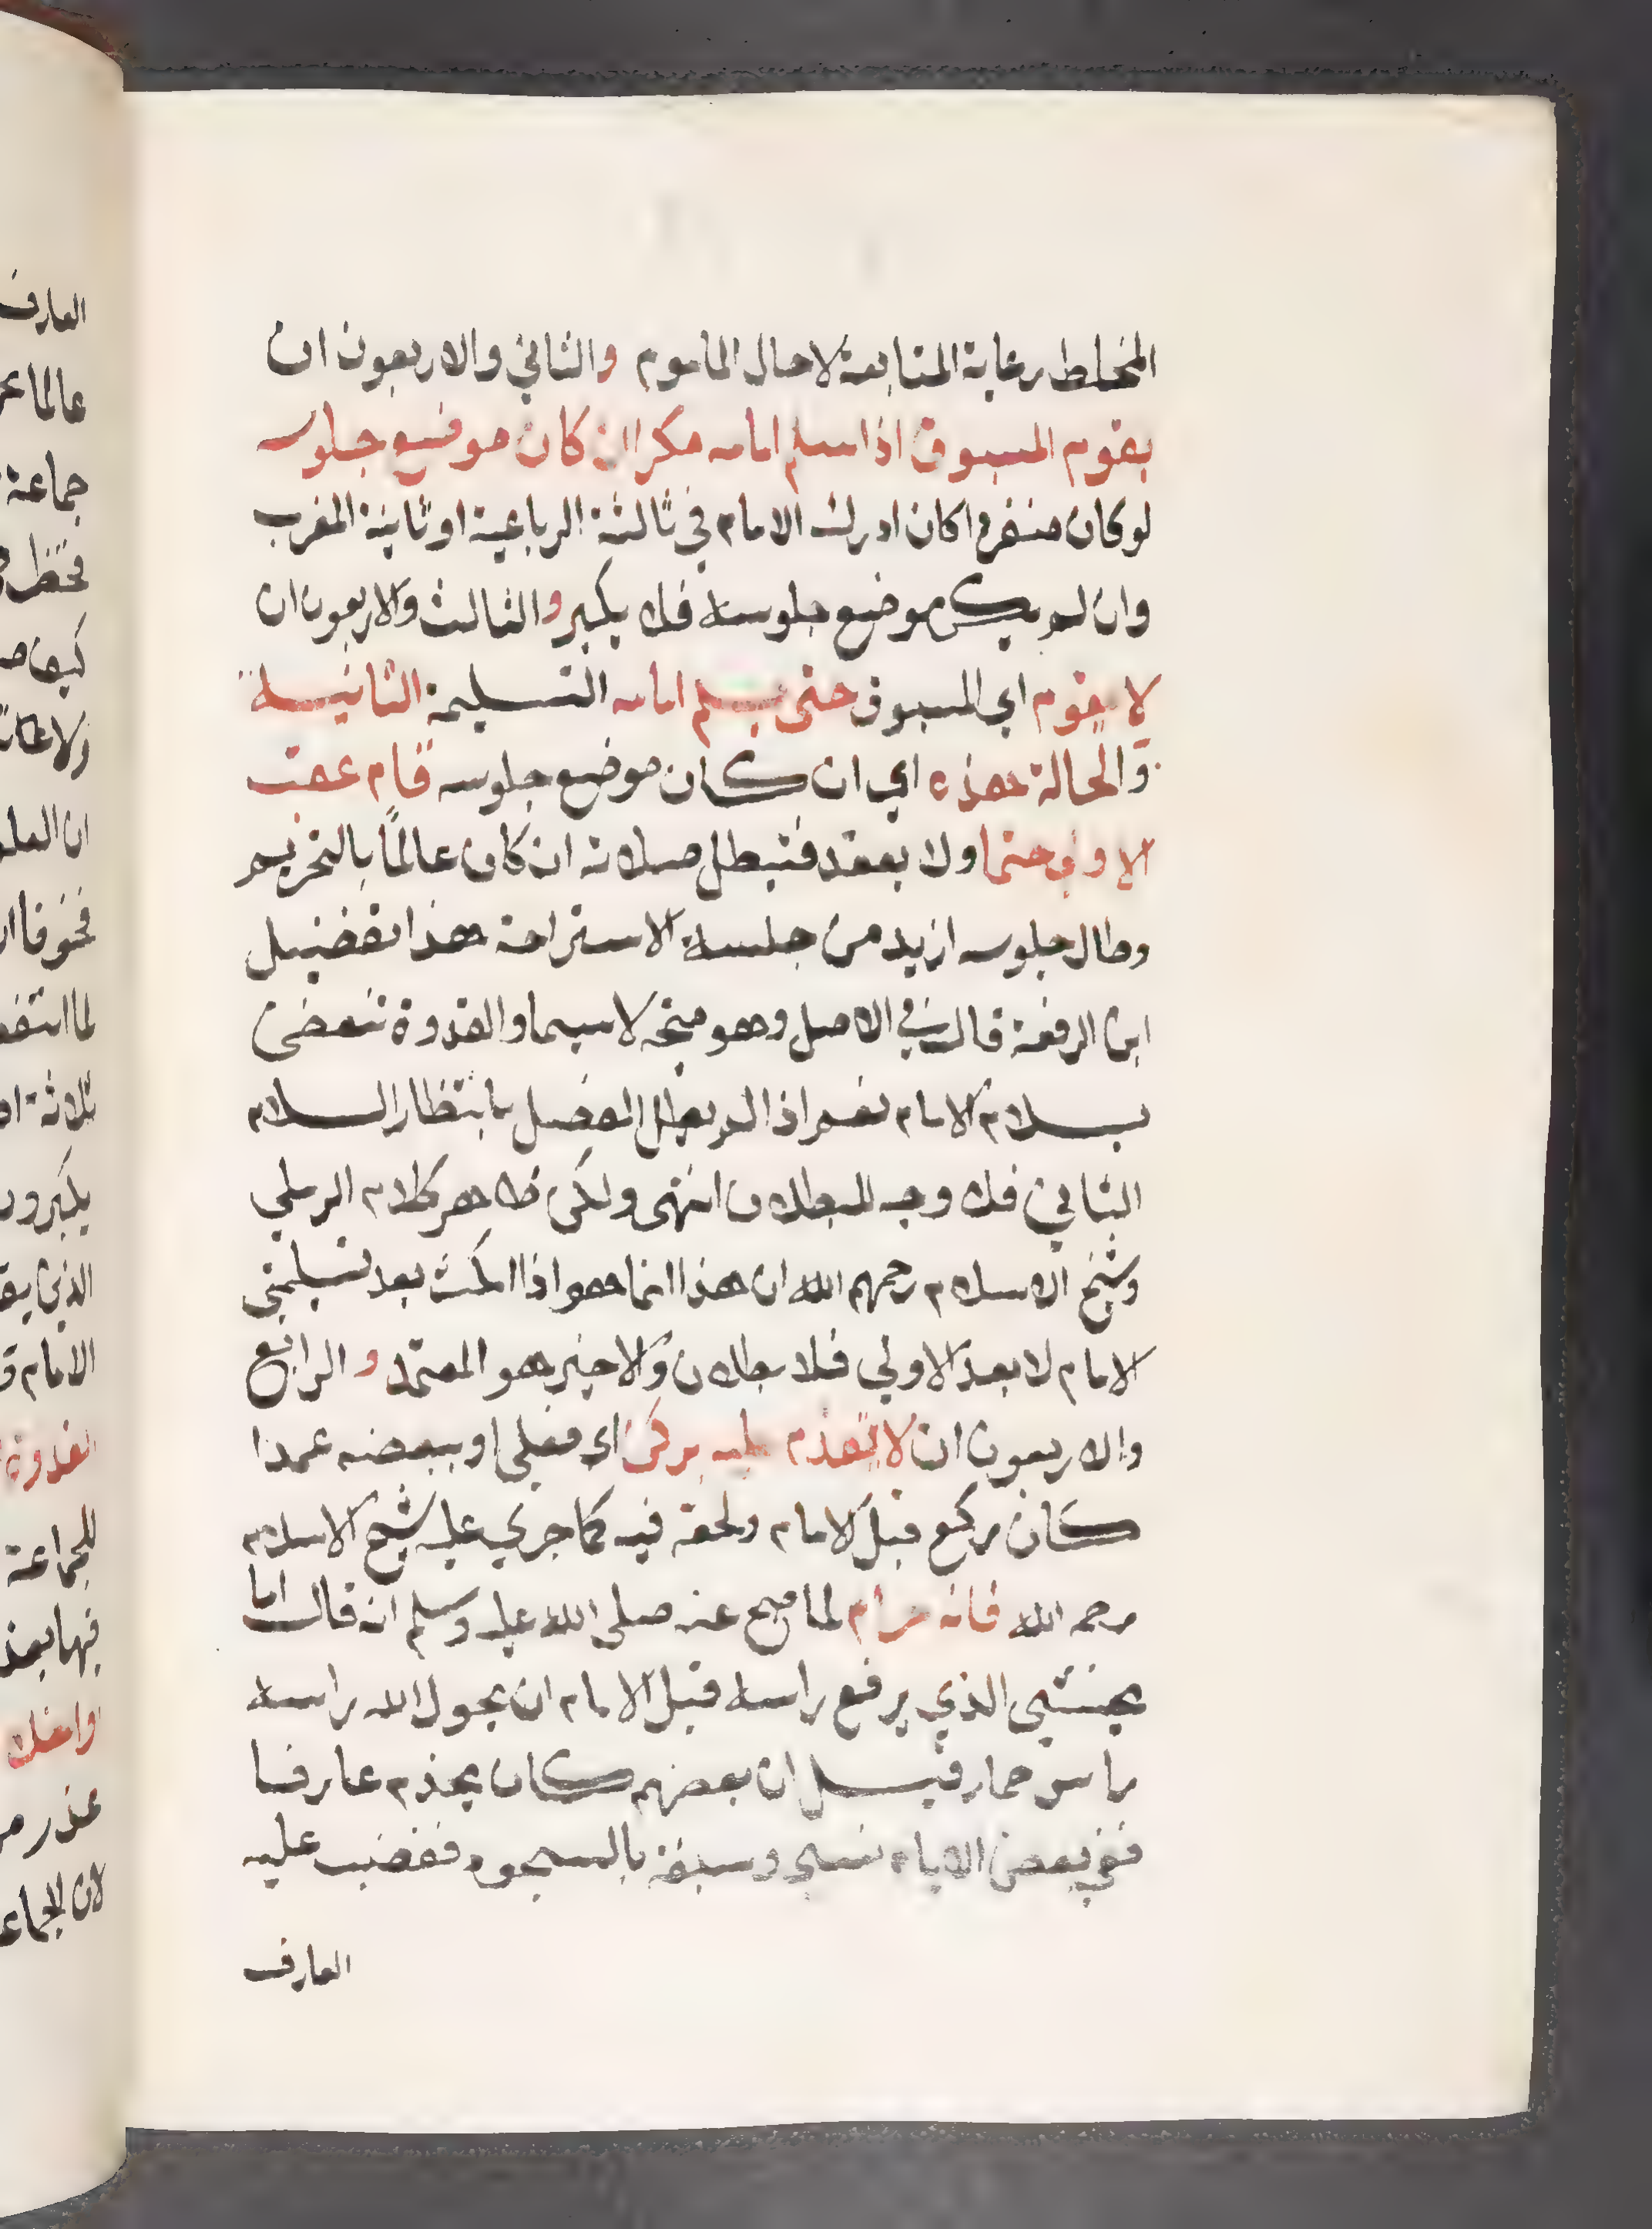 المخلط رعاية المتابعة لاحال الماموم والثاني والاربعون ان
يقوم المسبوق اذا سلم امامه مكبرا ان كان موضع جلوس
لوكان منفردا كان ادرك الامام في ثالثة الرباعية او ثانية المغرب
وان لم يكن موضع جلوسه فلا يكبر والثالث والاربعون ان
لا يقوم اي المسبوق حتى يسلم امامه التسليمة الثانية
والحالة هذه اي ان كان موضع جلوسه قام عقب
الاولي حتما ولا يقعد فتبطل صلاته ان كان عالمًا بالتحريم
وطال جلوسه ازيد من جلسة الاستراحة هذا تفضيل
ابن الرفعة قال في الاصل وهو متجه لاسيما والقدوة تنقضي
بسلام الامام نعم اذا لم يطل الفصل بانتظار السلام
الثاني فلا وجه للبطلان انتهى ولكن ظاهر كلام الرملي
وشيخ الاسلام رحمهم الله ان هذا انما هو اذا المكث بعد تسليمتي
الامام لا بعد الاولي فلا بطلان والاخير هو المعتمد و الرابع
والاربعون ان لا يتقدم عليه بركن اي فعلي او ببعضه عمدا
كان ركع قبل الامام ولحقه فيه كما جري عليه شيخ الاسلام
رحمه الله فانه حرام لما صح عنه صلى الله عليه وسلم انه قال اما
يخشى الذي يرفع راسه قبل الامام ان يحول الله راسه
راس حمار قيل ان بعضهم كان يخدم عارفا
ففي بعض الايام نسي وسبقه بالسجود فغضب عليه
العارف
العارف
عالما
جماعة
ان العلم
ثلاثة
يكبرون
الامام
القدوة
للجماعة
عذر